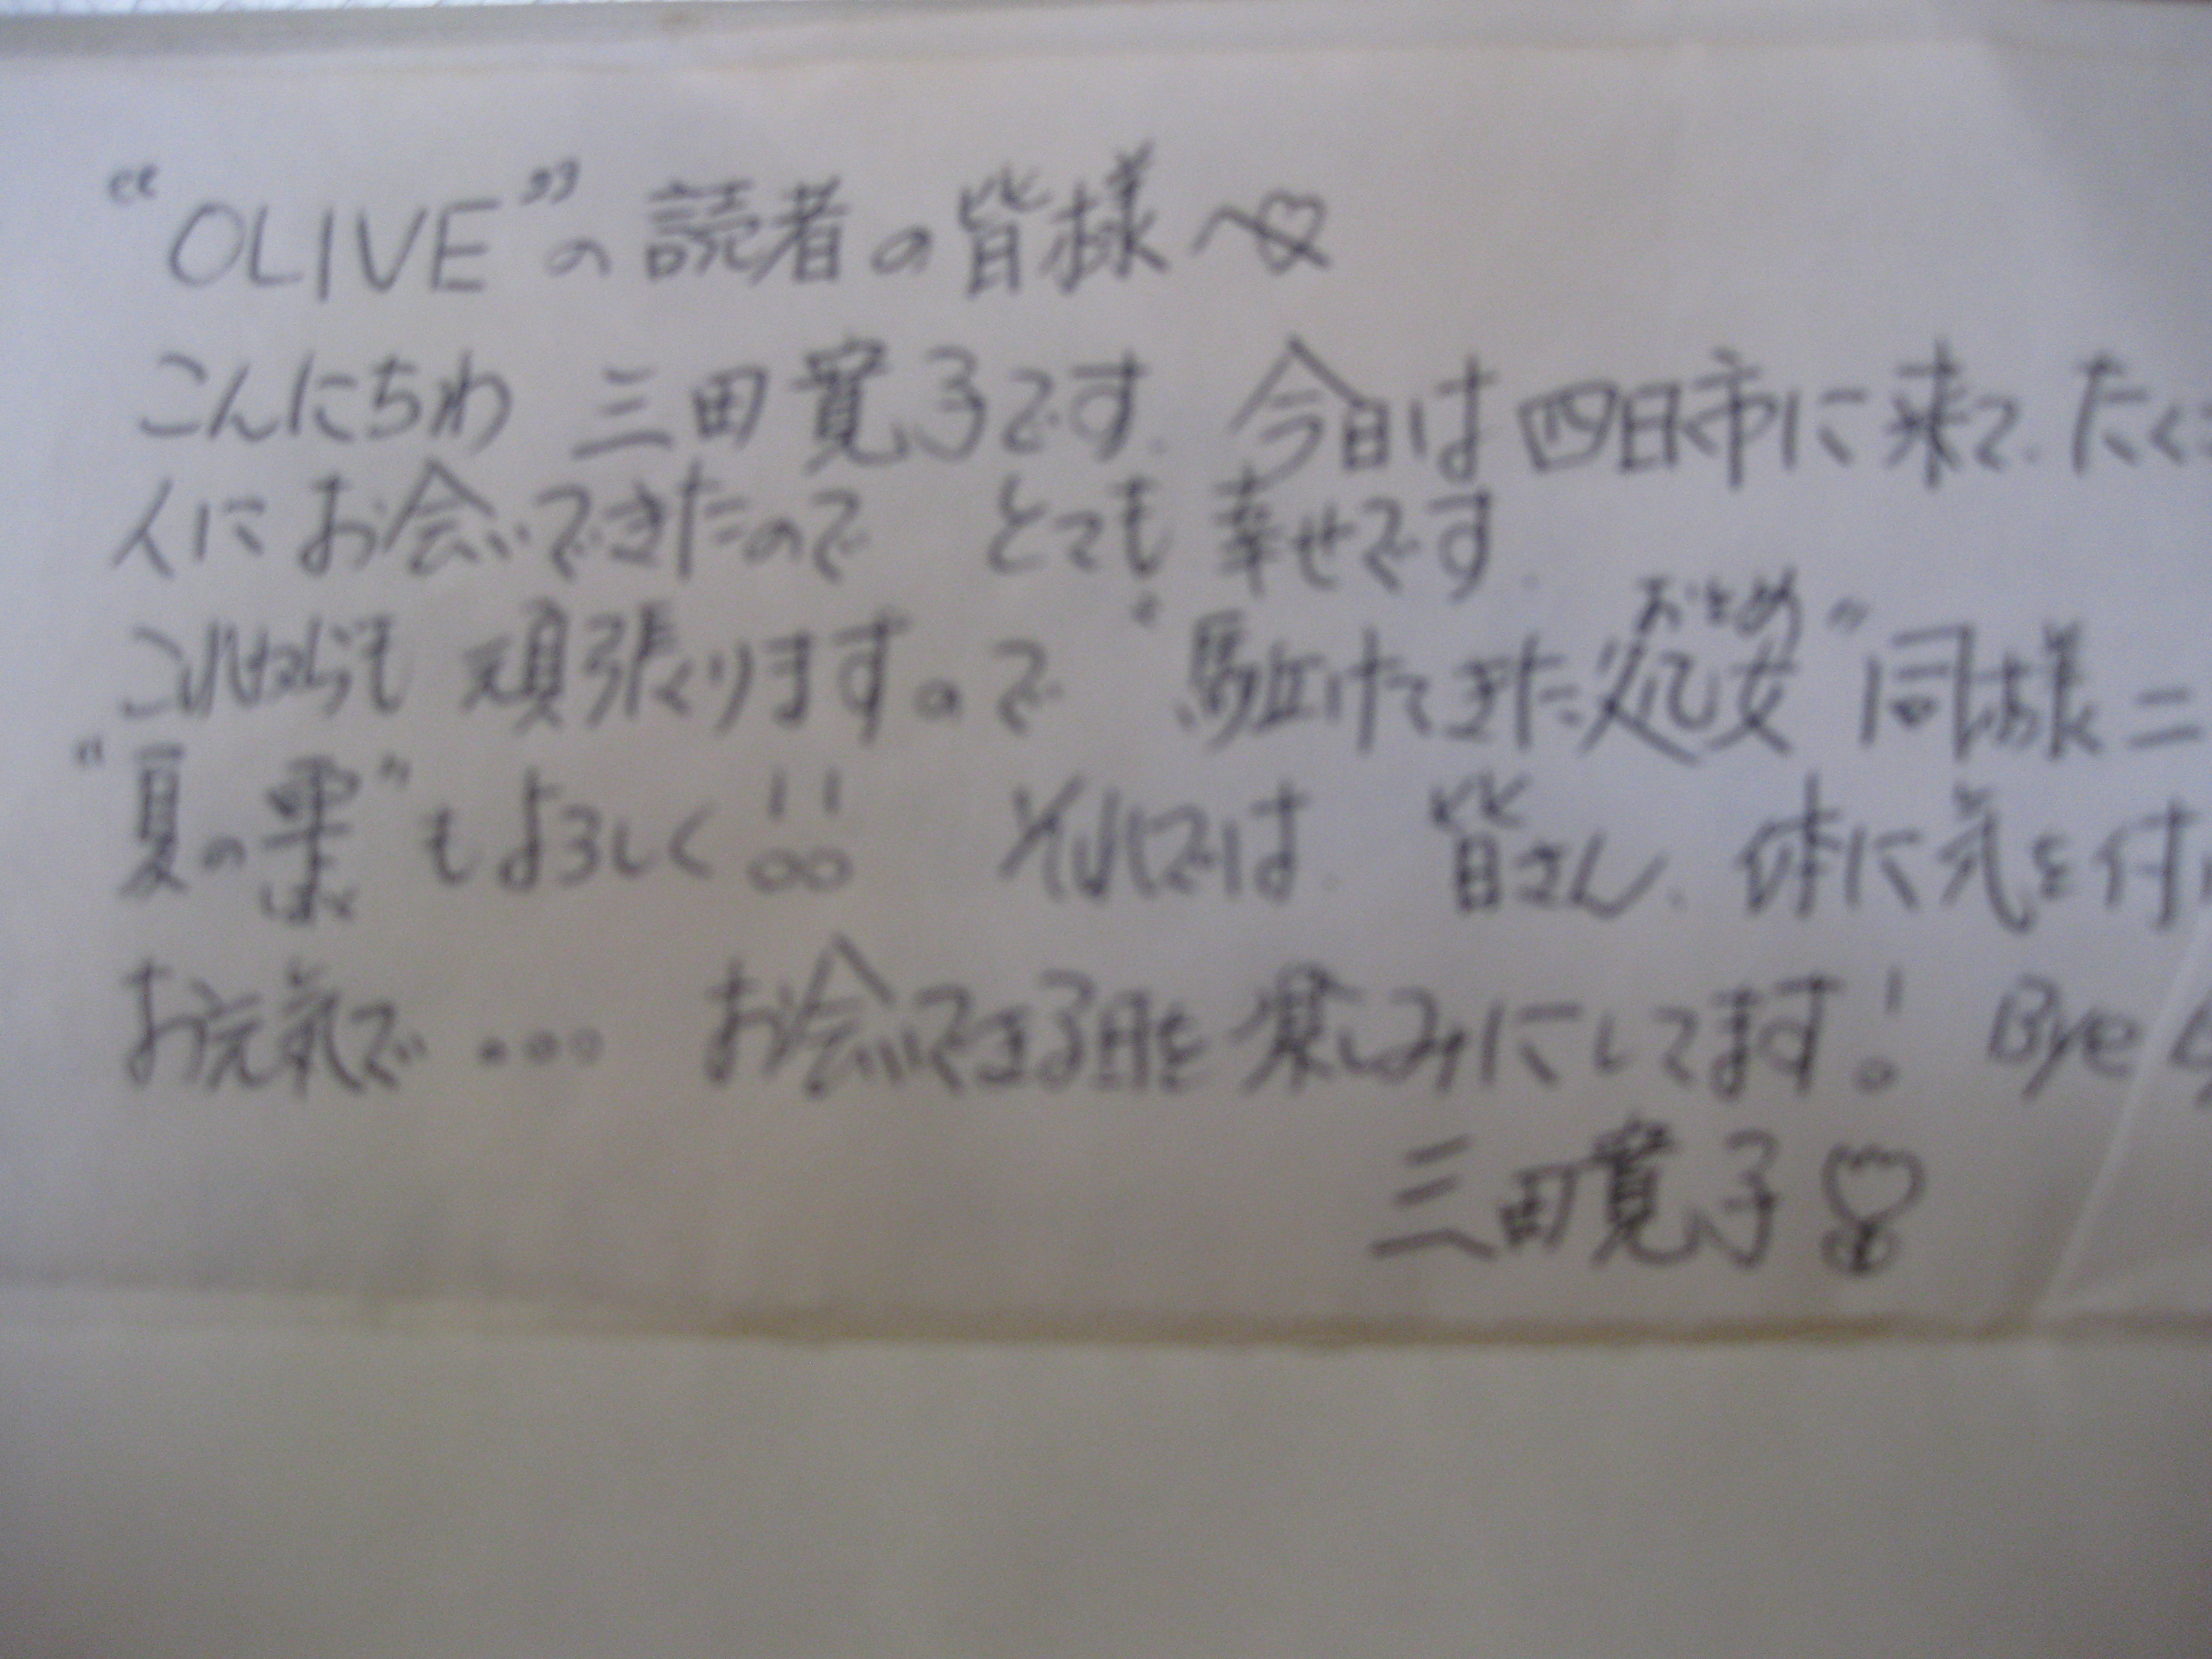 “OLIVE”の読者の皆様へ♡
こんにちわ 三田寛子です。今日は四日市に来て、たく
人にお会いできたので とても幸せです。
これからも 頑張りますので “駈けてきた処女おとめ” 同様二
“夏の雫” もよろしく!! それでは 皆さん、体に気を付
お元気で・・・ お会いできる日を楽しみにしてます! Bye
三田寛子♡